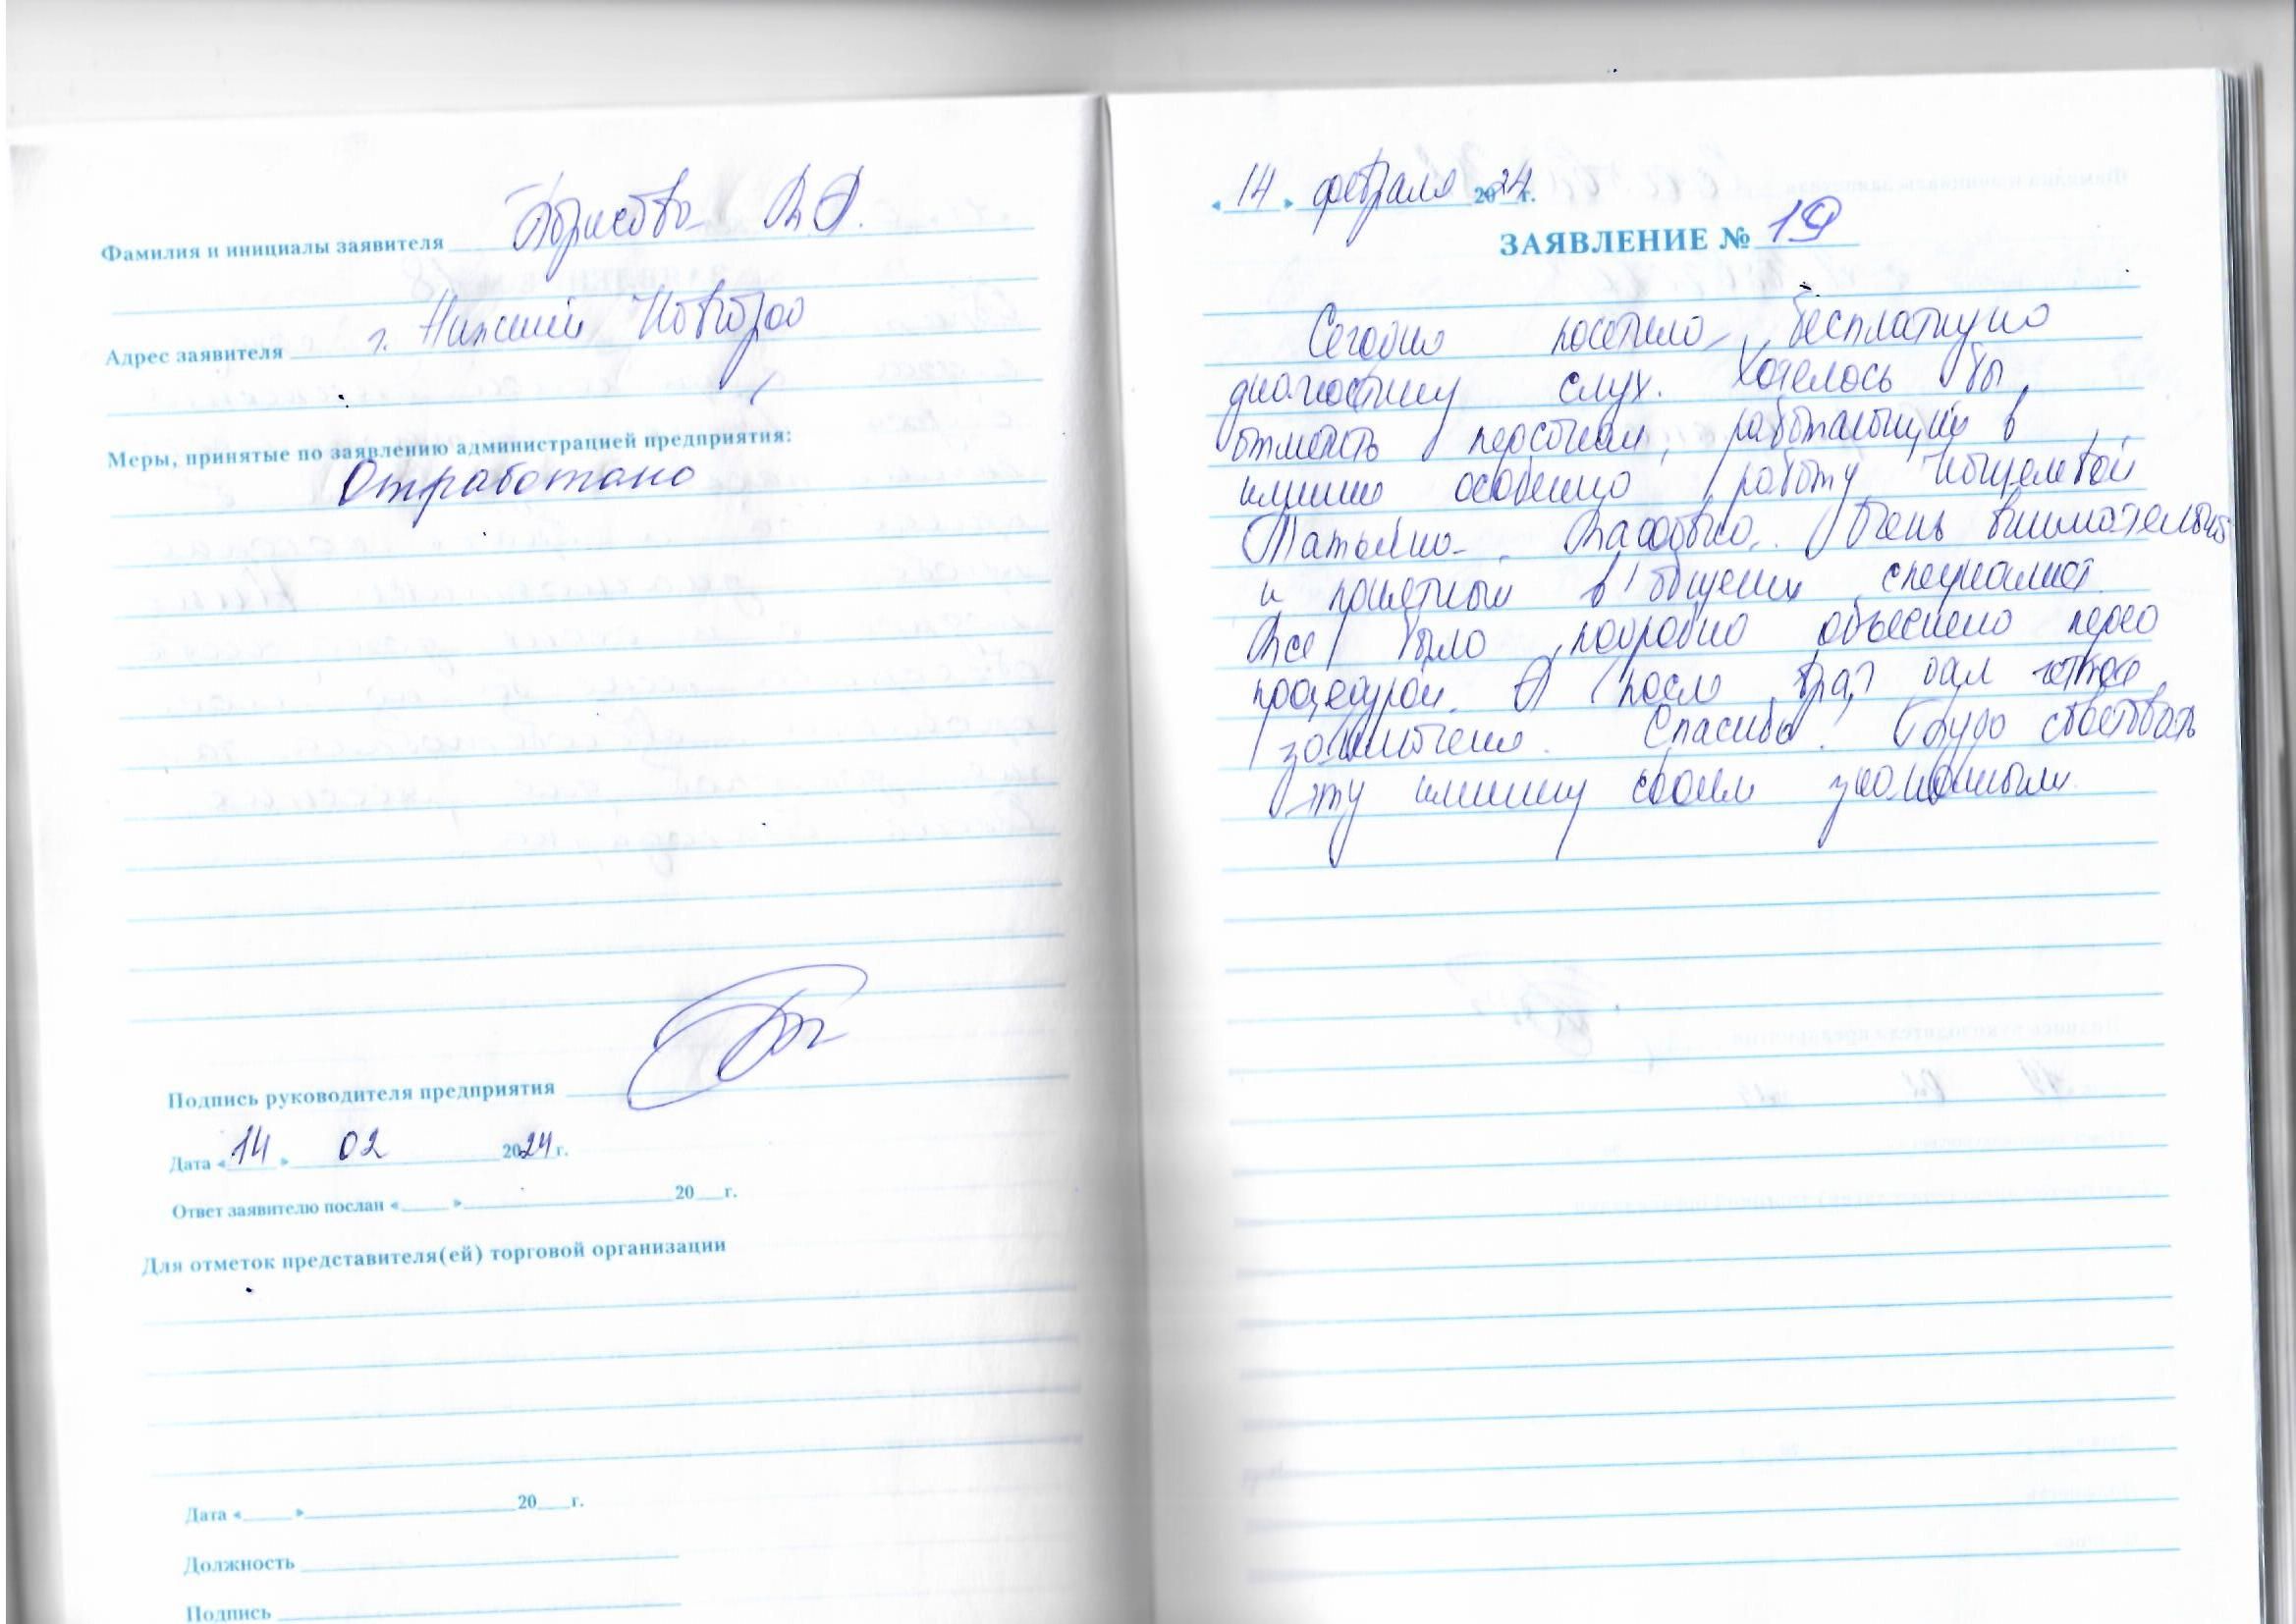 Фамилия и инициалы заявителя Борисова В.А.
Адрес заявителя г. Нижний Новгород
Меры, принятые по заявлению администрацией предприятия:
Отработано
Подпись руководителя предприятия
Дата «14» 02 2024 г.
Ответ заявителю послан « » 20 г.
Для отметок представителя(ей) торговой организации
Дата « » 20 г.
Должность
Подпись
«14» февраля 2024 г.
ЗАЯВЛЕНИЕ № 19
Сегодня посетила бесплатную
диагностику слух. Хотелось бы
отметить персонал, работающий в
клинике особенно работу
Татьяны . Очень внимательный
и приятный в общении специалист.
Все было подробно объяснено перед
процедурой. А после врач дал четкое
заключение. Спасибо! Буду советовать
эту клинику своим знакомым.